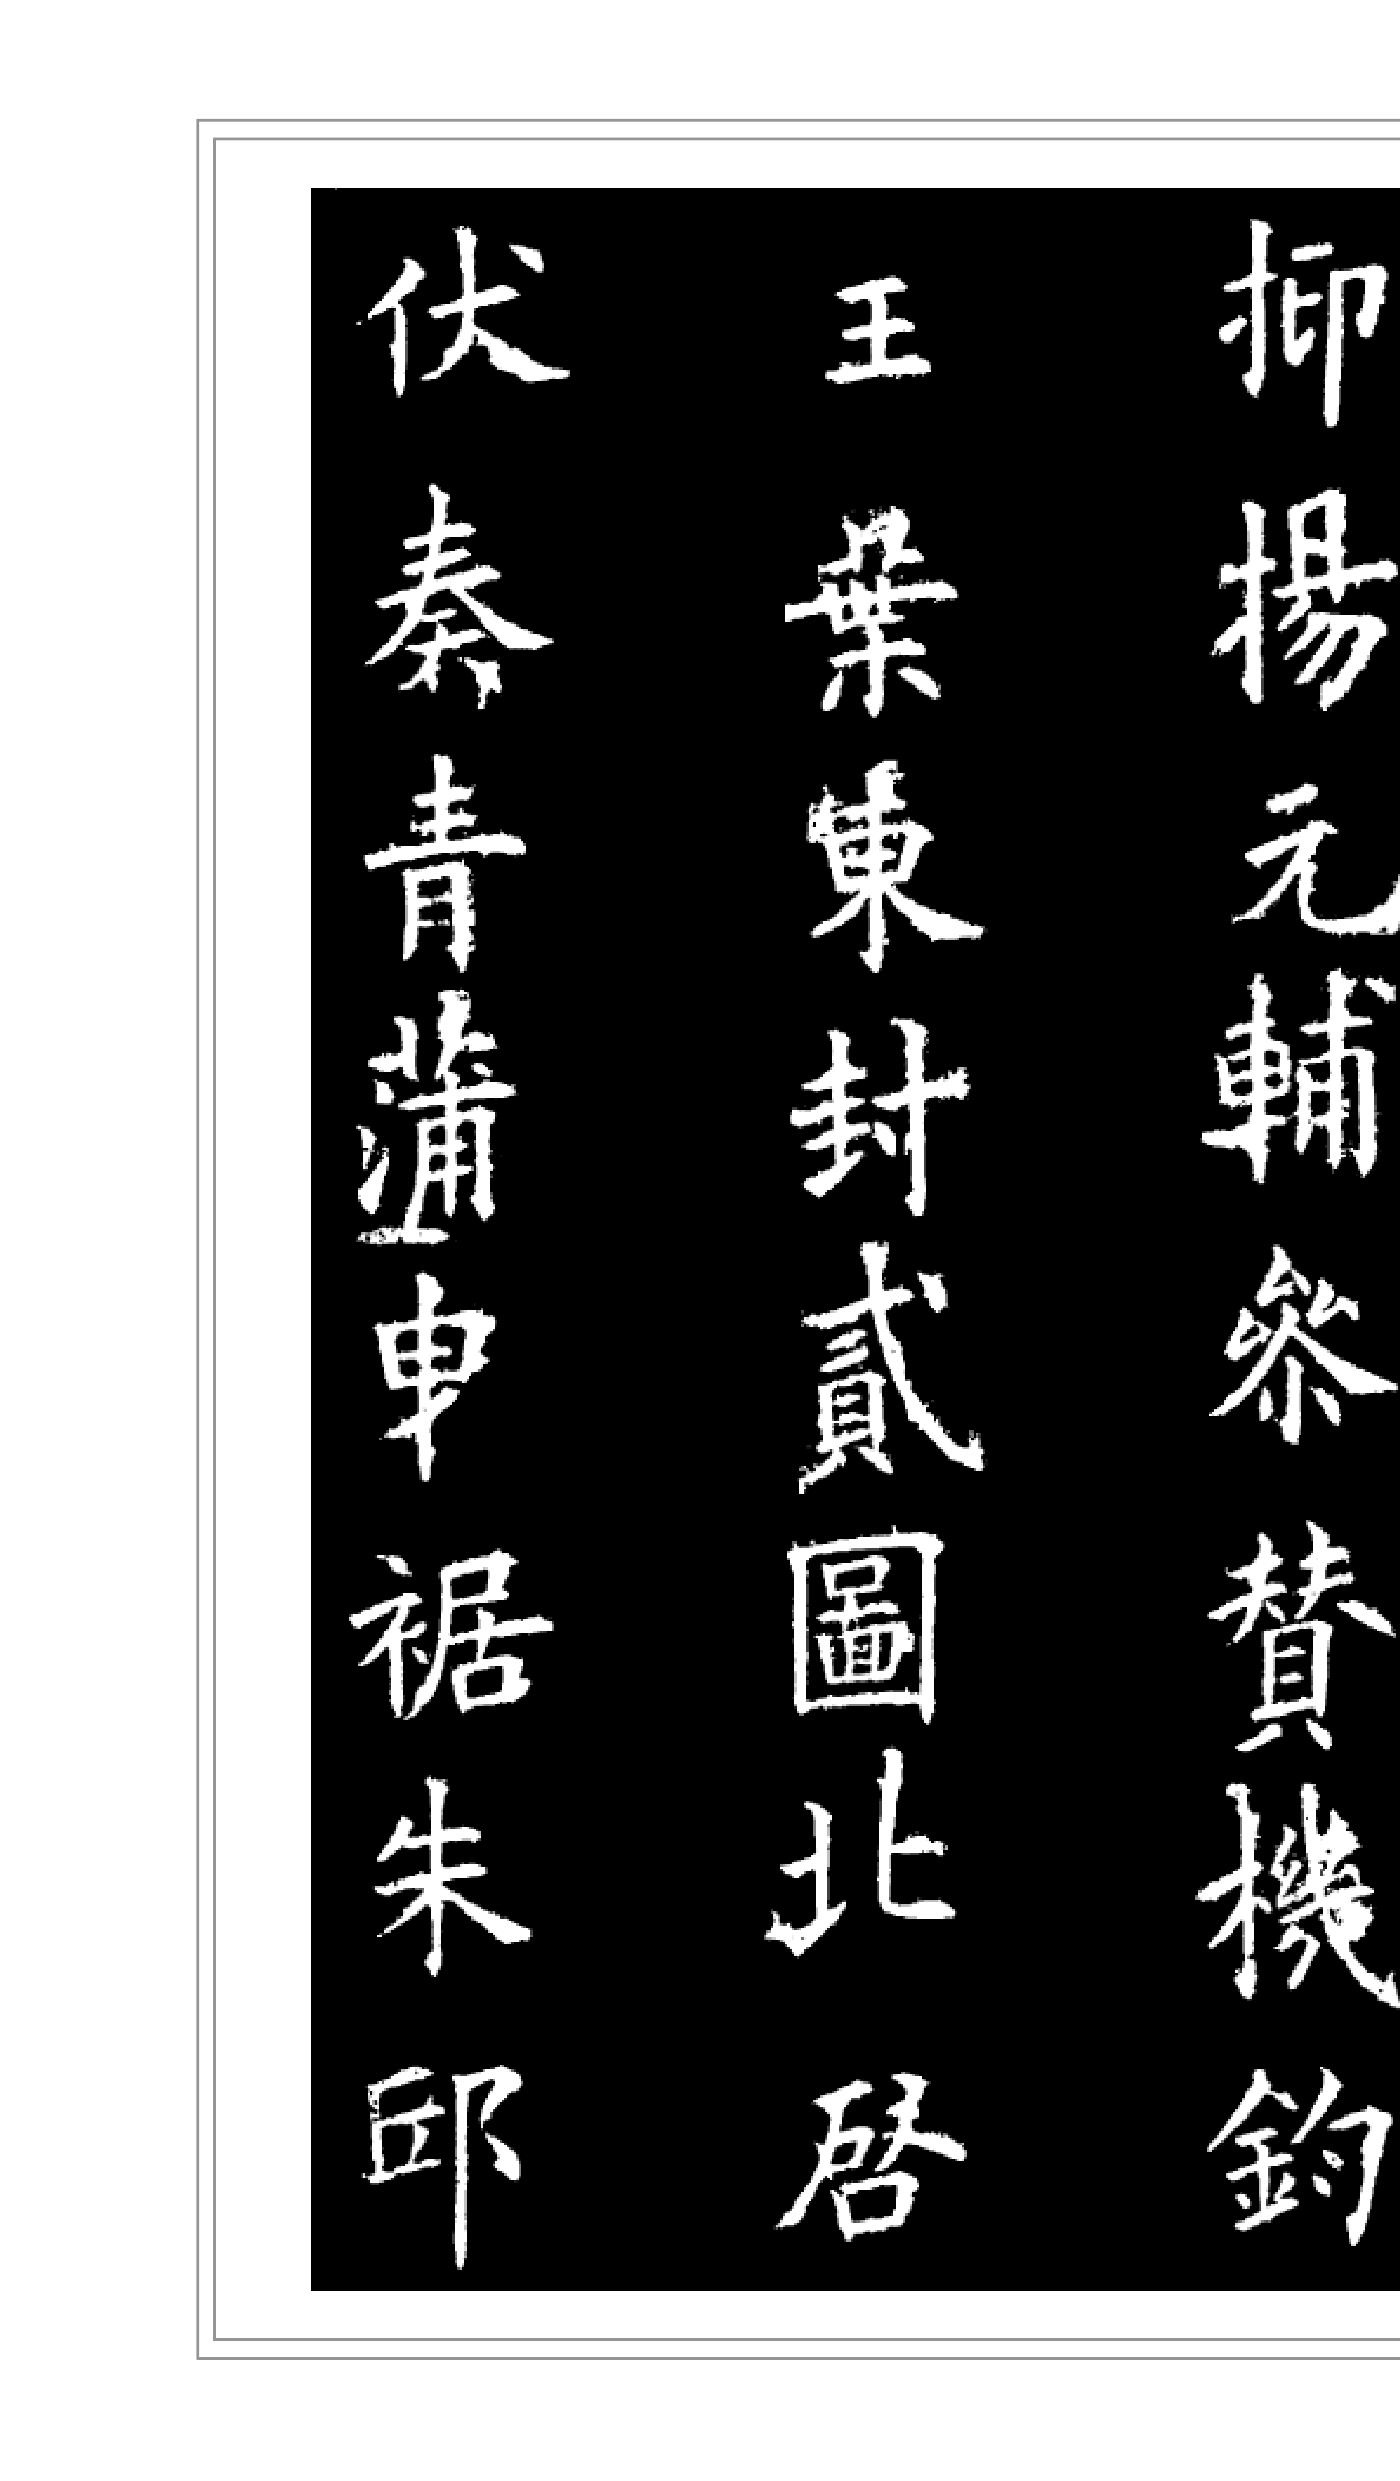 抑揚元輔叅賛機鈞
王葉東封貳圖北啓
伏奏青蒲曳裾朱邸